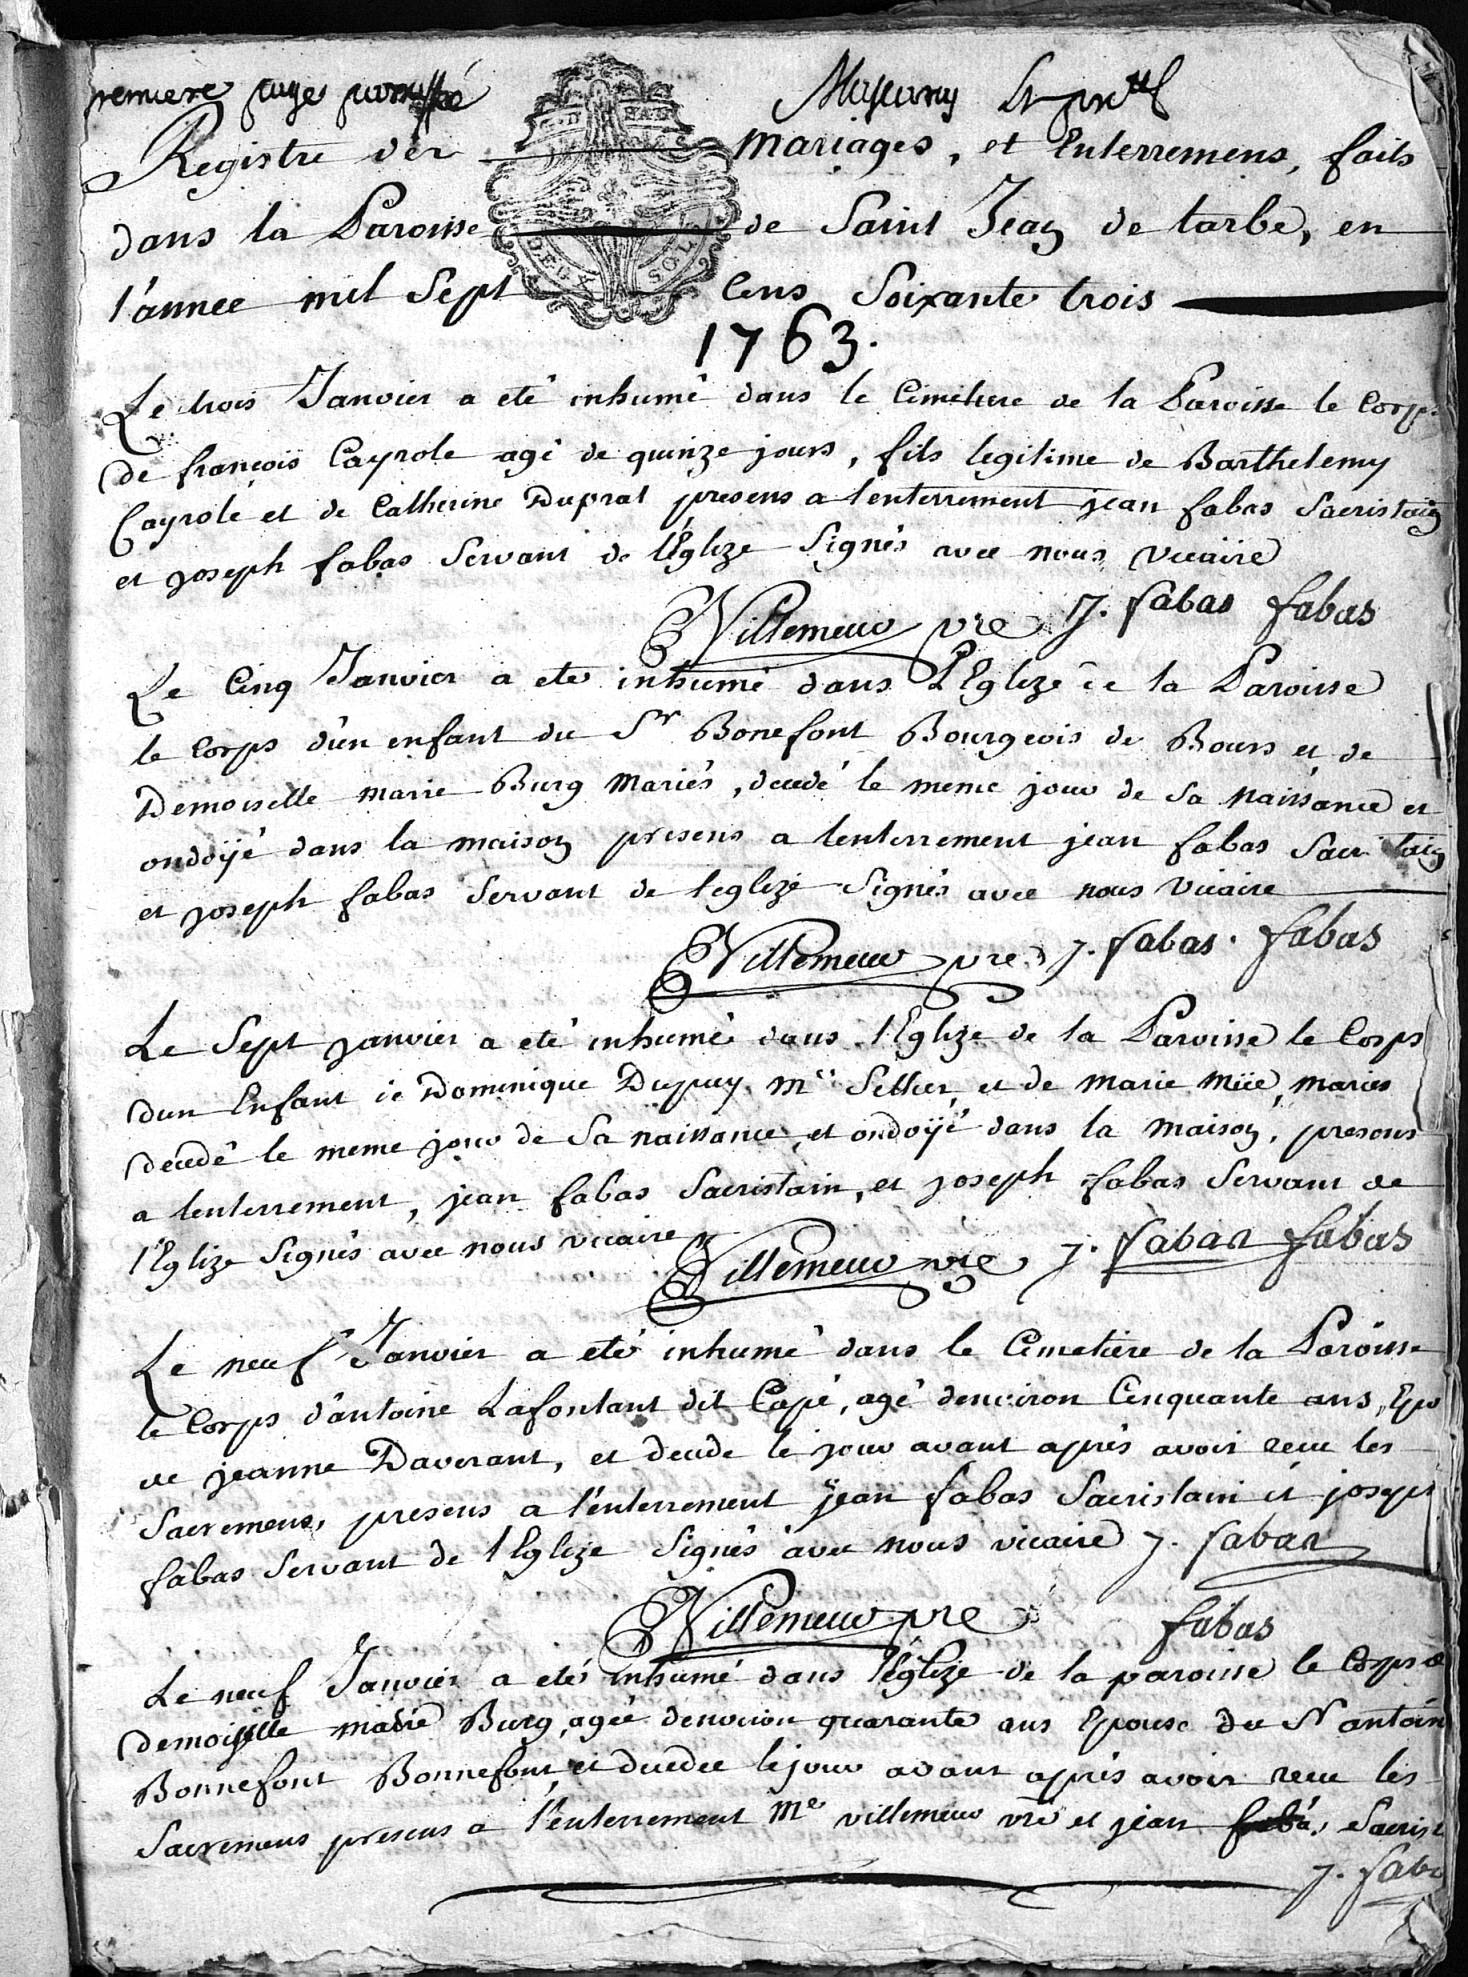 premiere page paraffé
Registre des mariages, et Enterremens, faits
dans la Paroisse de Saint Jean de tarbe, en
DEUX SOLS
l'année mil Sept Cens Soixante trois
1763.
Le trois Janvier a eté inhumé dans le Cimetiere de la Paroisse le Corps
de françois Cayrole agé de quinze jours, fils legitime de Barthelemy
Cayrole et de Catherine Duprat presens a lenterrement jean fabas Sacristain
et joseph fabas Servant de l'Églize Signés avec nous Vicaire
Villemeur vre J. fabas fabas
Le Cinq Janvier a eté inhumé dans L'Eglize de la Paroisse
le Corps d'un enfant du Sr Bonefont Bourgeois de Bours et de
Demoiselle marie Burg Mariés, decedé le meme jour de Sa naissance et
ondoÿé dans la maison presens a lenterrement jean fabas Sacristain
et joseph fabas Servant de leglize Signés avec nous Vicaire
Villemeur vre J. fabas. fabas
Le Sept janvier a eté inhumé dans l'Eglize de la Paroisse le Corps
dun Enfant de Dominique Dupuy Me Sellier, et de marie mariés
decedé le meme jour de Sa naissance, et ondoÿé dans la maison, presens
a lenterrement, jean fabas Sacristain, et joseph fabas Servant de
l'Eglize Signés avec nous vicaire Villemeur vre J. fabas fabas
Le neuf Janvier a eté inhumé dans le Cimetiere de la Paroisse
le Corps d'antoine Lafontant dit Capé, agé denviron Cinquante ans, Epo
de jeanne Daverant, et decede le jour avant après avoir recu les
Sacremens, presens a l'enterrement jean fabas Sacristain et joseph
fabas Servant de l'Eglize Signés avec nous vicaire J. fabas
Villemeur vre fabas
Le neuf Janvier a eté inhumé dans l'églize de la paroisse le Corps de
demoiselle marie Burg, agée denviron quarante ans Epouse du Sr antoin
Bonnefont Bonnefont, et decedee le jour avant après avoir recu les
Sacremens presens a l'enterrement Me villemeur vre et jean fabas Sacrist
J. fabas